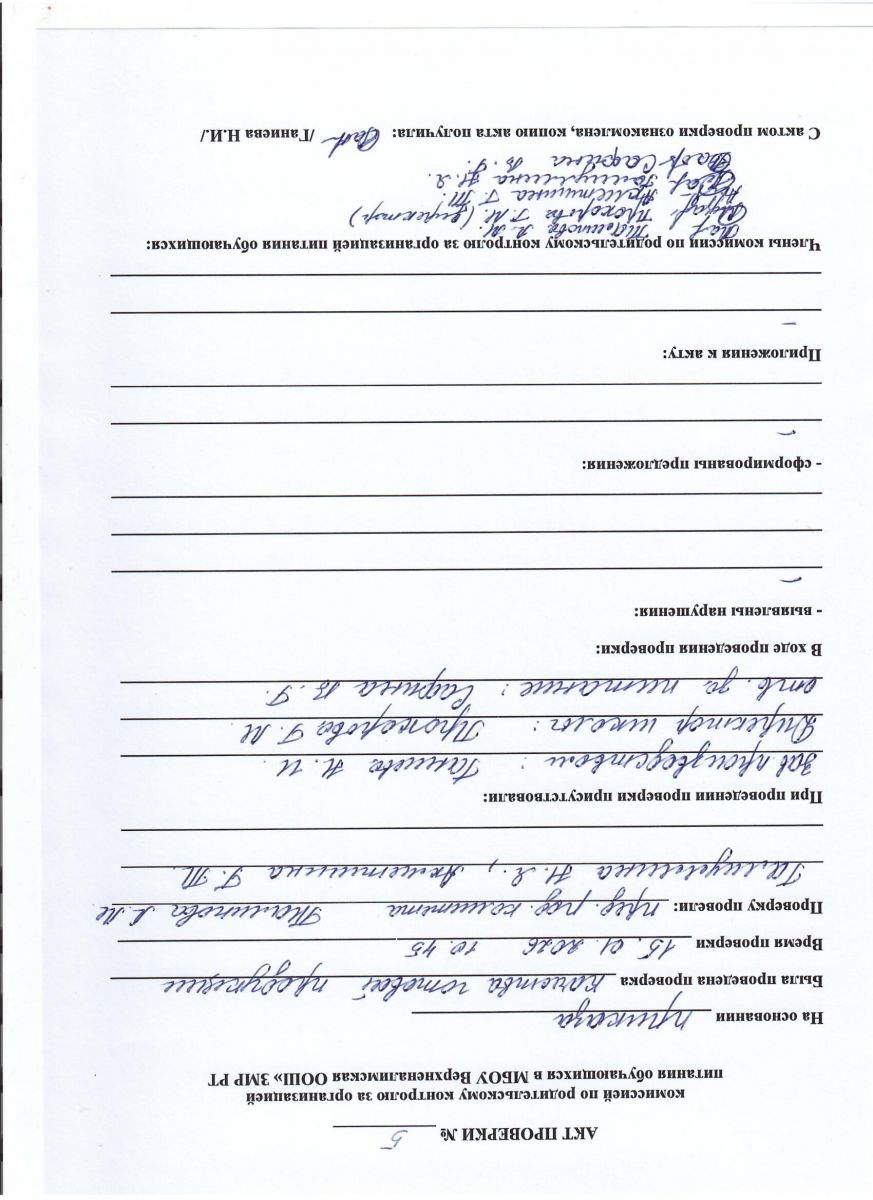 АКТ ПРОВЕРКИ № 5
комиссией по родительскому контролю за организацией
питания обучающихся в МБОУ Верхненалимская ООШ» ЗМР РТ
На основании приказа
Была проведена проверка качества готовой продукции
Время проверки 15.01.2026 10.45
Проверку провели: пред. род. комитета Талипова Л.М
Галиуллина Н.Я., Ахметшина Г.Т.
При проведении проверки присутствовали:
Зав производством: Ганиева Н.И.
Директор школы: Прохорова Г.М.
отв. за питание: Сафина В.Г.
В ходе проведения проверки:
- выявлены нарушения:
–
- сформированы предложения:
–
Приложения к акту:
–
Члены комиссии по родительскому контролю за организацией питания обучающихся:
Талипова Л.М.
Прохорова Г.М. (директор)
Ахметшина Г.Т.
Галиуллина Н.Я.
Сафина В.Г.
С актом проверки ознакомлена, копию акта получила: /Ганиева Н.И./